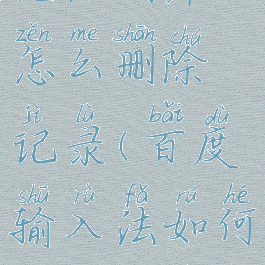 zěn me shān chú
怎么删除
jì lù bǎi dù
记录(百度
shū rù fǎ rú hé
输入法如何